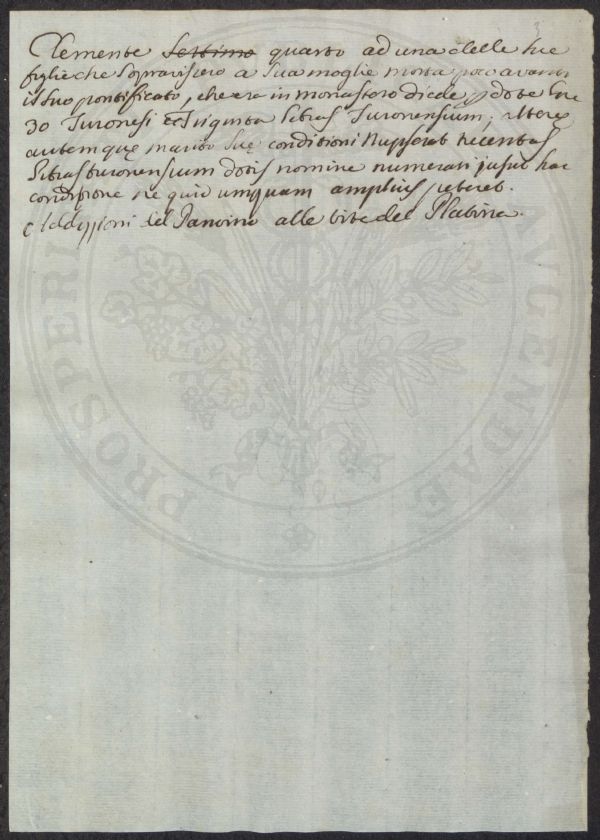 Clemente Settimo quarto ad una delle sue
figlie che Sopravissero a Sua moglie morta poco avanti
il suo pontificato, che era in monastero diede p dote lire
30 Turonesi Triginta libras Turonensium; alteri
autem quę marito suę conditioni Nupserat trecentas
libras turonensium dotis nomine numerari jussit hac
conditione ne quid umquam amplius peteret.
del Panvino alle vite del Platina.
PROSPERITATI AVGENDAE